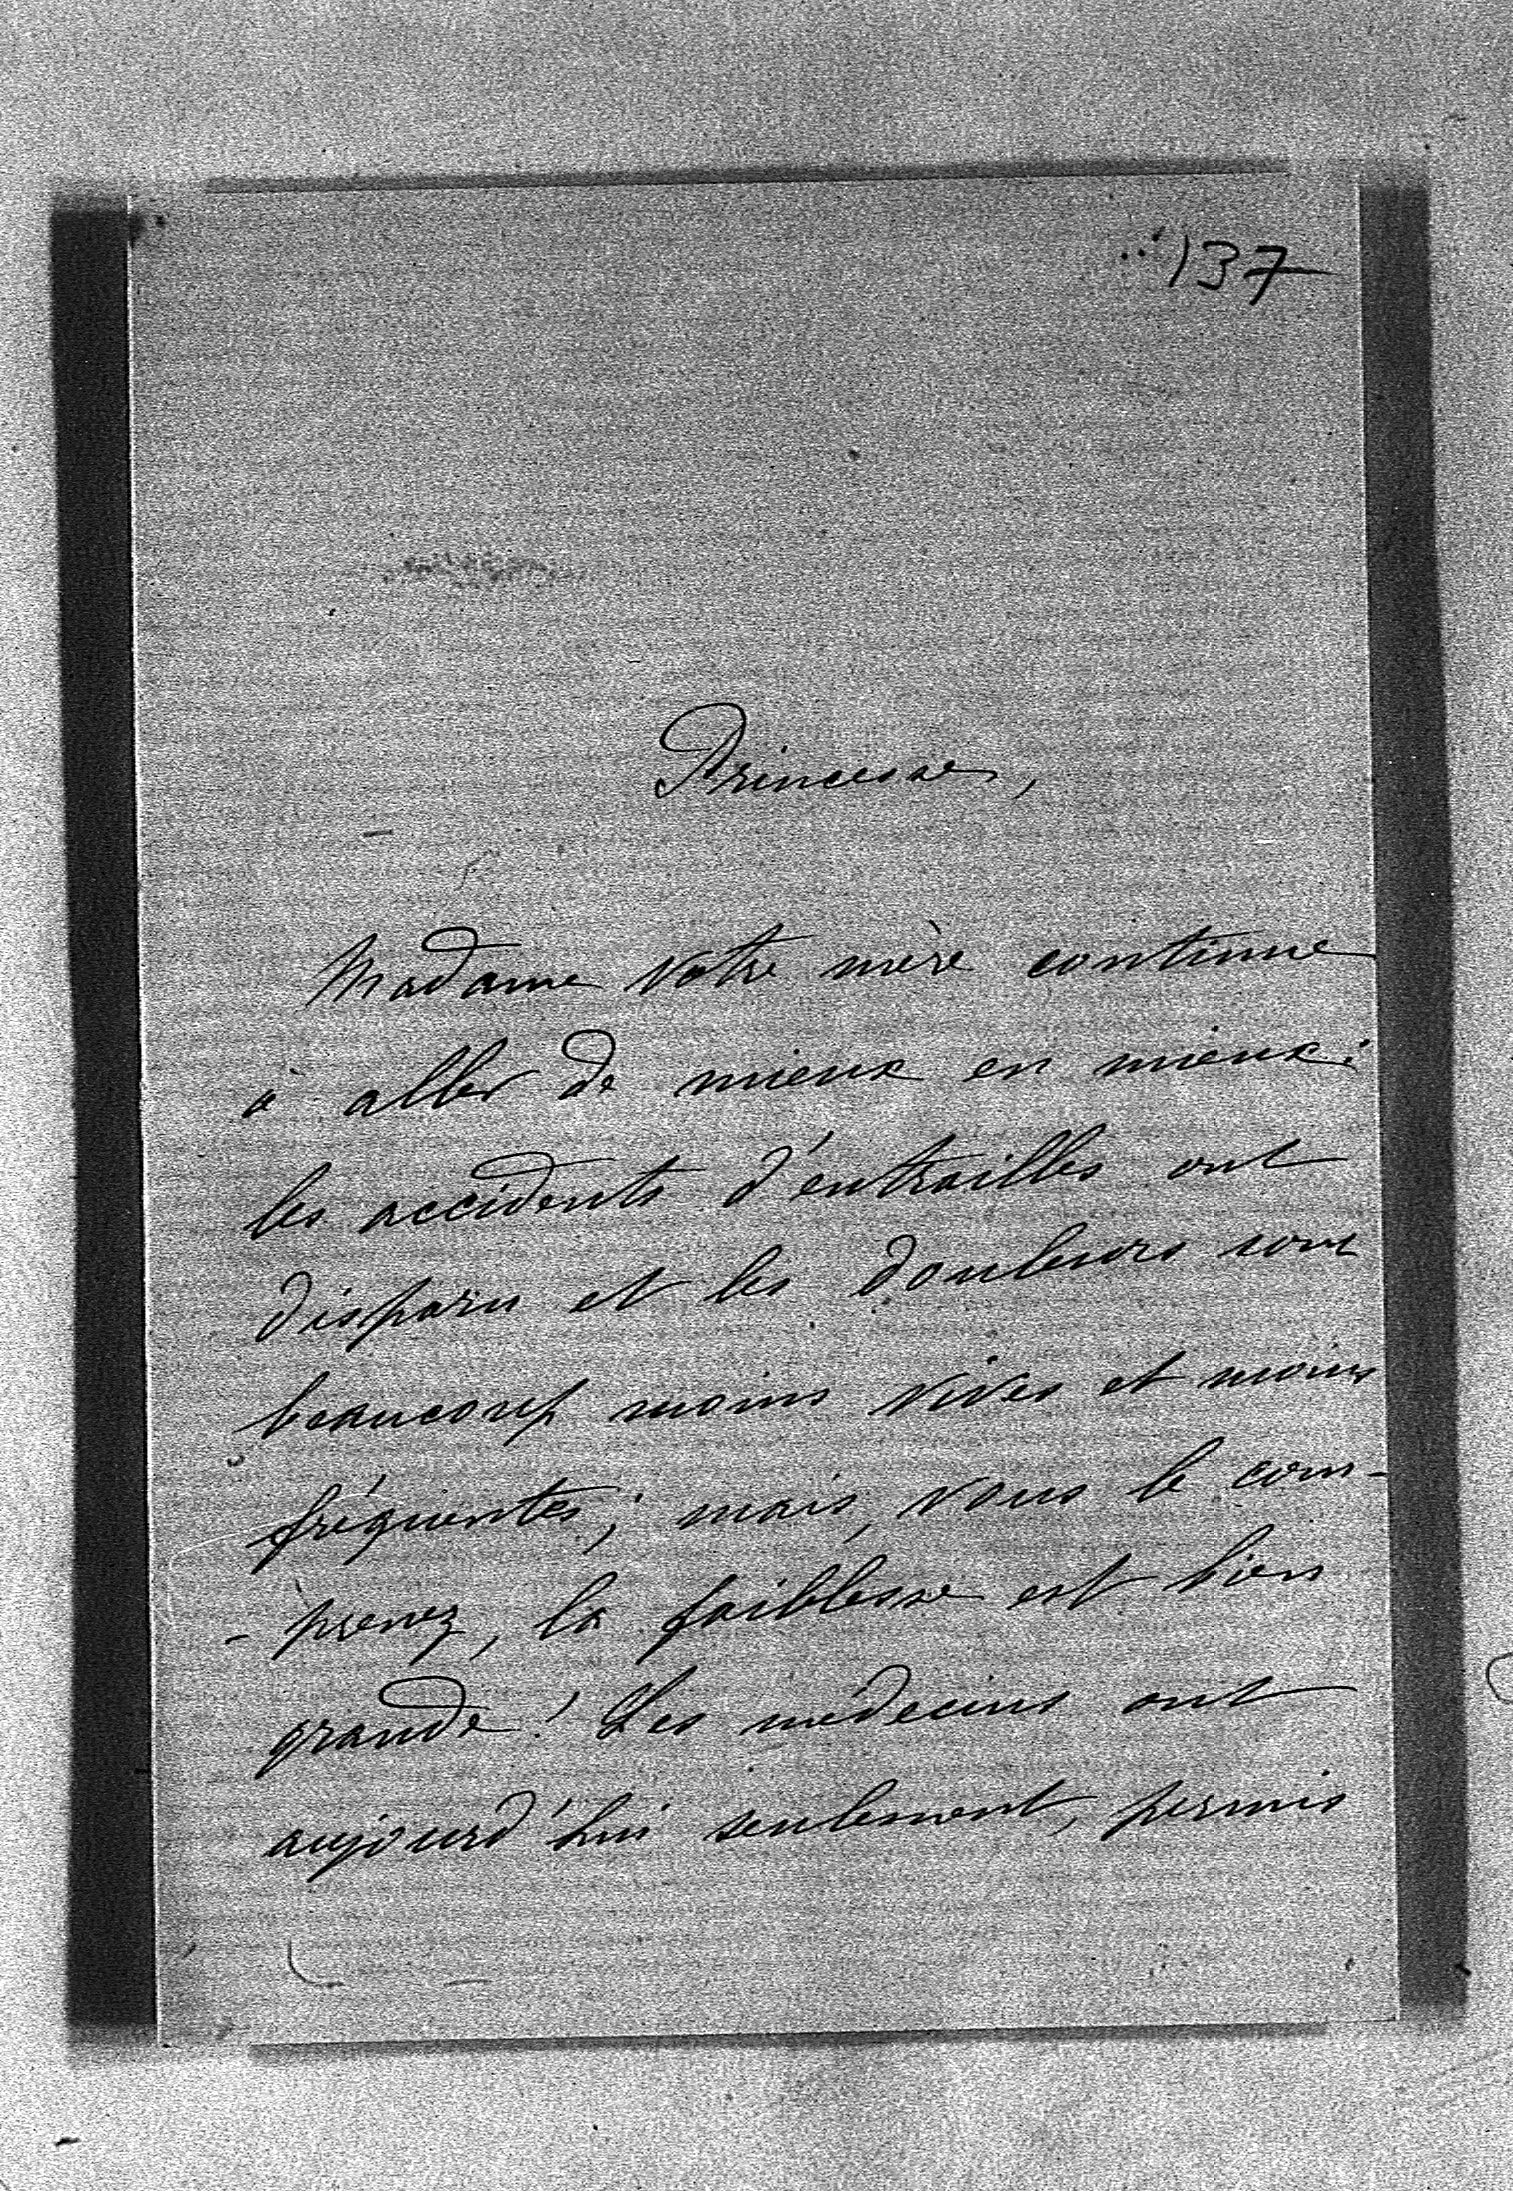 137
Princesse,
Madame votre mère continue
à aller de mieux en mieux:
les accidents d'entrailles ont
disparu et les douleurs sont
beaucoup moins vives et moins
fréquentes; mais, vous le com-
- prenez, la faiblesse est bien
grande! Les médecins ont
aujourd'hui seulement, permis